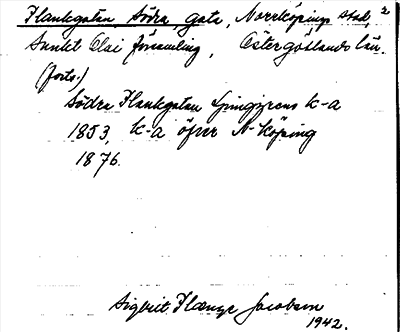 Plankgatan, Södra gata, Norrköpings stad, 2
Sankt Olai församling, Östergötlands län.
(forts.)
Södra Plankgatan Ljunggrens k-a
1853, k-a öfver N-köping
1876.
Sigbrit Plænge Jacobson
1942.